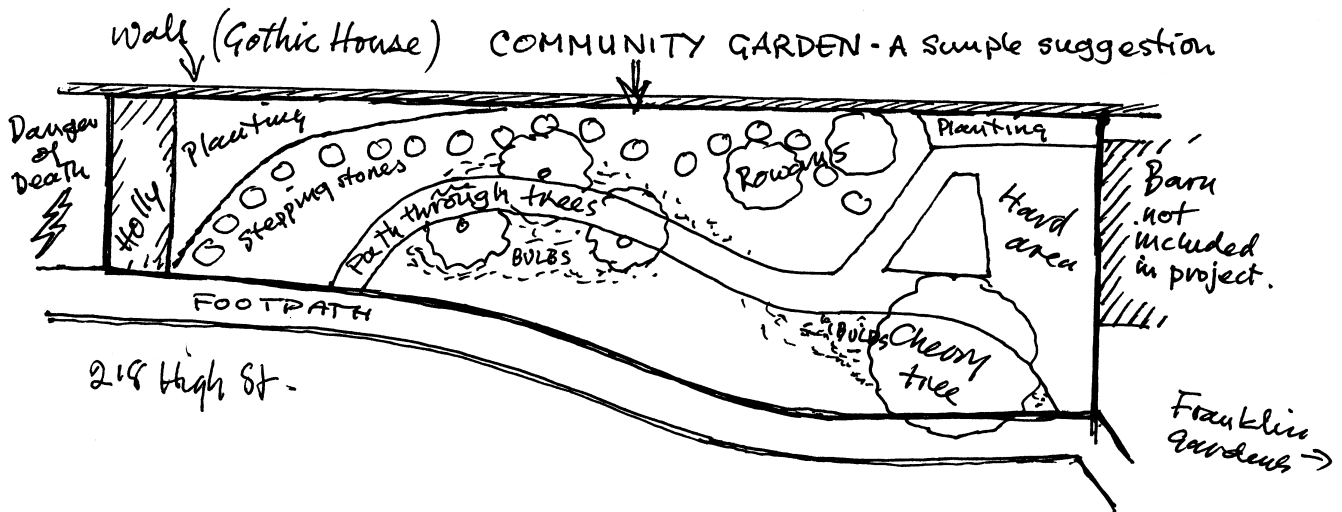 Wall (Gothic House)
COMMUNITY GARDEN - A simple suggestion
Danger
of
Death
Holly
Planting
Stepping stones
Path through trees
BULBS
Rowans
Planting
Hard
area
Barn
not
included
in project.
FOOTPATH
BULBS
Cherry
tree
218 High St.
Franklin
gardens →